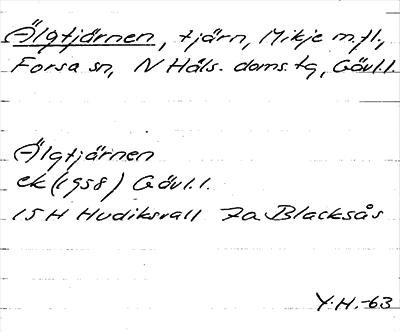 Älgtjärnen, tjärn, Mikje m.fl.,
Forsa sn, N Häls. doms. tg, Gävl.l.
Älgtjärnen
ek (1958) Gävl.l.
15H Hudiksvall 7a Blacksås
Y.H.-63